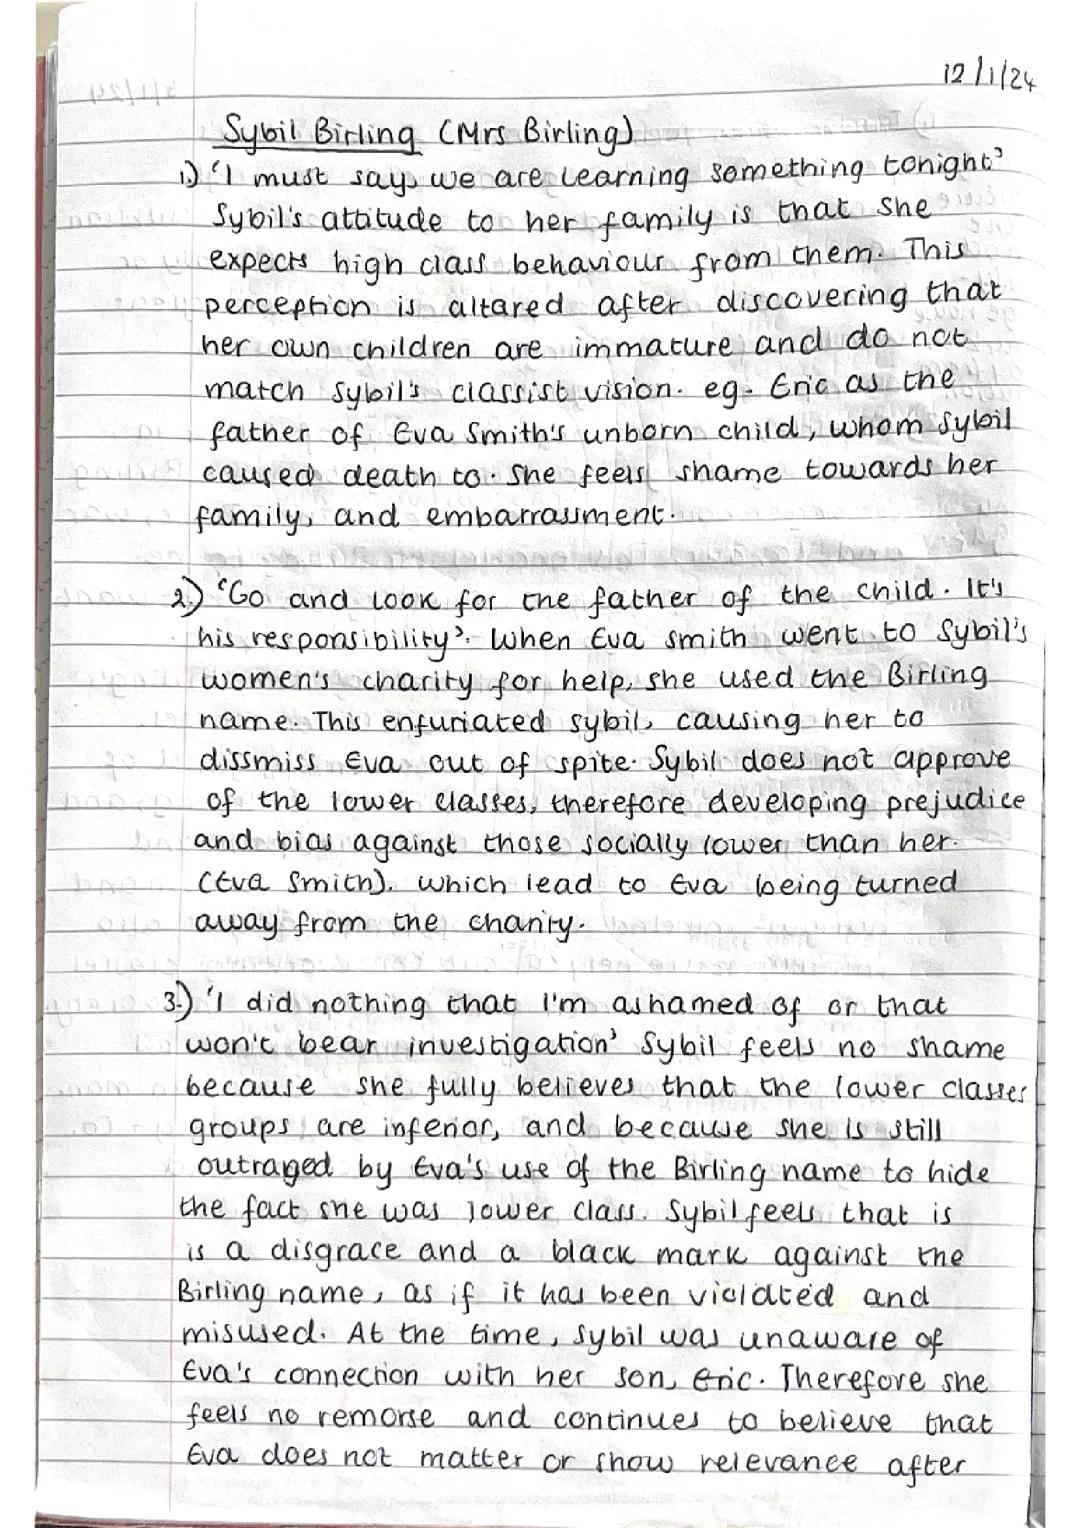 12/1/24
Sybil Birling (Mrs Birling)
1.) 'I must say, we are learning something tonight'
Sybil's attitude to her family is that she
expects high class behaviour from them. This
perception is altared after discovering that
her own children are immature and do not
match Sybil's classist vision. eg. Eric as the
father of Eva Smith's unborn child, whom Sybil
caused death to. She feels shame towards her
family, and embarrassment.
2.) 'Go and look for the father of the child. It's
his responsibility'. When Eva Smith went to Sybil's
women's charity for help, she used the Birling
name. This enfuriated Sybil, causing her to
dissmiss Eva out of spite. Sybil does not approve
of the lower classes, therefore developing prejudice
and bias against those socially lower than her.
(Eva Smith). which lead to Eva being turned
away from the charity.
3.) 'I did nothing that I'm ashamed of or that
won't bear investigation' Sybil feels no shame
because she fully believes that the lower classes
groups are inferior, and because she is still
outraged by Eva's use of the Birling name to hide
the fact she was lower class. Sybil feels that is
is a disgrace and a black mark against the
Birling name, as if it has been violated and
misused. At the time, Sybil was unaware of
Eva's connection with her son, Eric. Therefore she
feels no remorse and continues to believe that
Eva does not matter or show relevance after